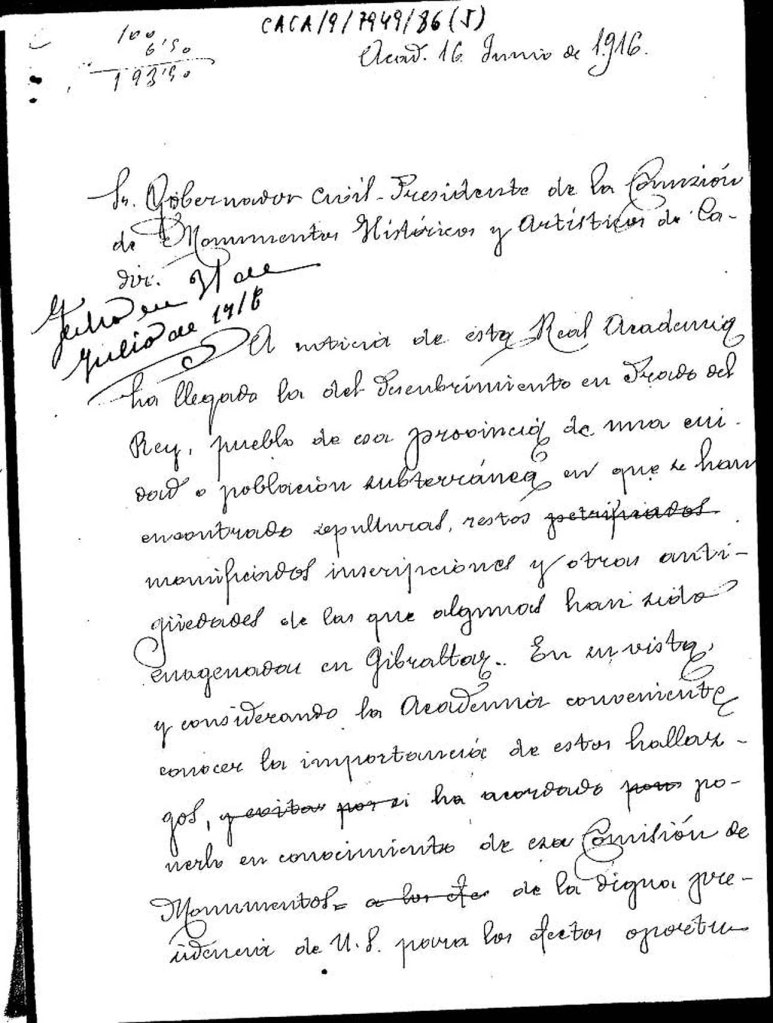 CACA/9/7949/86(5)
100
6'50
193'50
Acad. 16 Junio de 1916.
Sr. Gobernador Civil-Presidente de la Comisión
de Monumentos Históricos y Artísticos de Ca-
diz.
Julio de 1916
A noticia de esta Real Academia
ha llegado la del descubrimiento en Prado del
Rey, pueblo de esa provincia de una ciu-
dad o población subterránea en que se han
encontrado sepulturas, restos petrificados
momificados inscripciones y otras anti-
güedades de las que algunas han sido
enagenadas en Gibraltar. En su vista,
y considerando la Academia conveniente
conocer la importancia de estos hallaz-
gos, y evitar por si ha acordado para po-
nerlo en conocimiento de esa Comisión de
Monumentos a los efec de la digna pre-
sidencia de U. S. para los efectos oportu